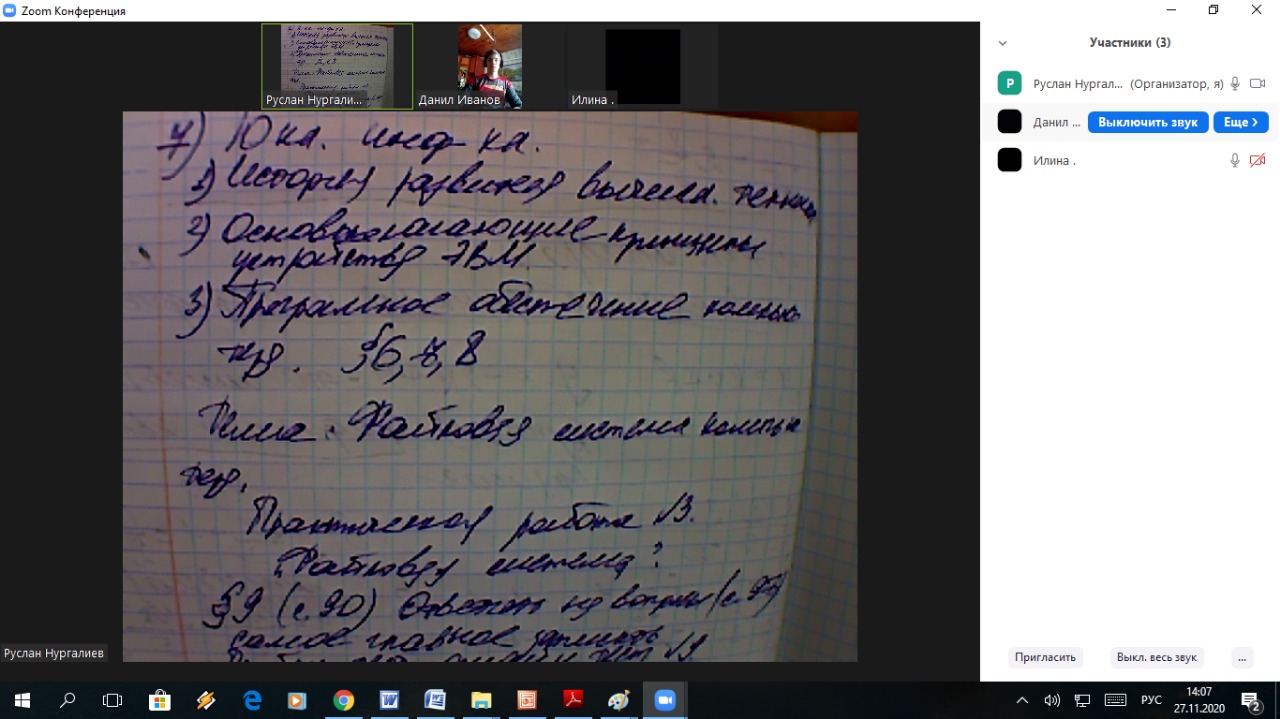 Zoom Конференция
Руслан Нургали...
Данил Иванов
Илина .
7) Юка. инф-ка.
1) История развития вычисл. техники
2) Основополагающие принципы
устройства ЭВМ.
3) Программное обеспечение компью
тера. §6, 7, 8
Тема: Файловая система компью
тера.
Практическая работа №3.
Файловая система
§9 (с.90) Ответить на вопросы (с.97)
самое главное
Руслан Нургалиев
Участники (3)
Р
Руслан Нургал... (Организатор, я)
Данил ... Выключить звук Еще
Илина .
Пригласить Выкл. весь звук ...
РУС 14:07
27.11.2020
2